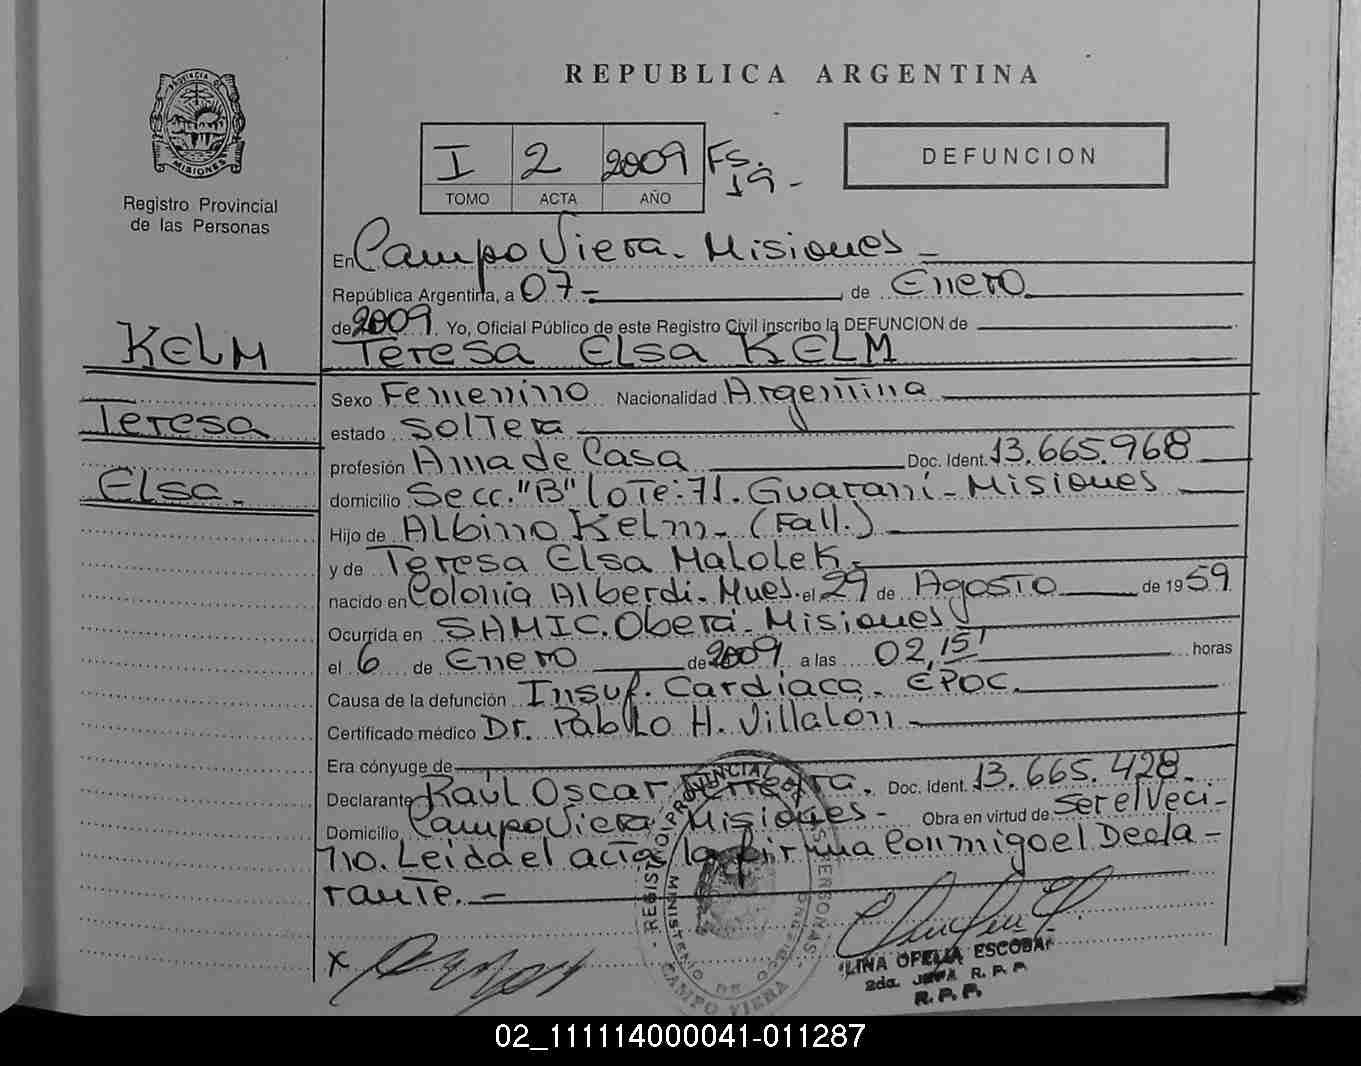 REPUBLICA ARGENTINA
PROVINCIA DE
MISIONES
Registro Provincial
de las Personas
I 2 2009 Fs. 19 -
TOMO ACTA AÑO
DEFUNCION
En Campo Viera - Misiones -
República Argentina, a 07 - , de Enero
de 2009. Yo, Oficial Público de este Registro Civil inscribo la DEFUNCION de
KELM
Teresa
Elsa.
Teresa Elsa KELM
Sexo Femenino Nacionalidad Argentina
estado Soltera
profesión Ama de Casa Doc. Ident. 13.665.968
domicilio Secc. "B" Lote: 71. Guaraní - Misiones
Hijo de Albino Kelm - (Fall.)
y de Teresa Elsa Malolek
nacido en Colonia Alberdi - Mnes. el 29 de Agosto de 1959
Ocurrida en SAMIC. Oberá - Misiones
el 6 de Enero de 2009 a las 02,15' horas
Causa de la defunción Insuf. Cardiaca. EPOC.
Certificado médico Dr. Pablo H. Villalón
Era cónyuge de
Declarante Raúl Oscar Doc. Ident. 13.665.428.
Domicilio Campo Viera - Misiones - Obra en virtud de Ser el Veci-
no. Leida el acta la firma conmigo el Decla-
rante. -
REGISTRO PROVINCIAL DE LAS PERSONAS
MINISTERIO DE
CAMPO VIERA
x
OFELIA ESCOBAR
2da. JEFA R. P. P.
R. P. P.
02_111114000041-011287